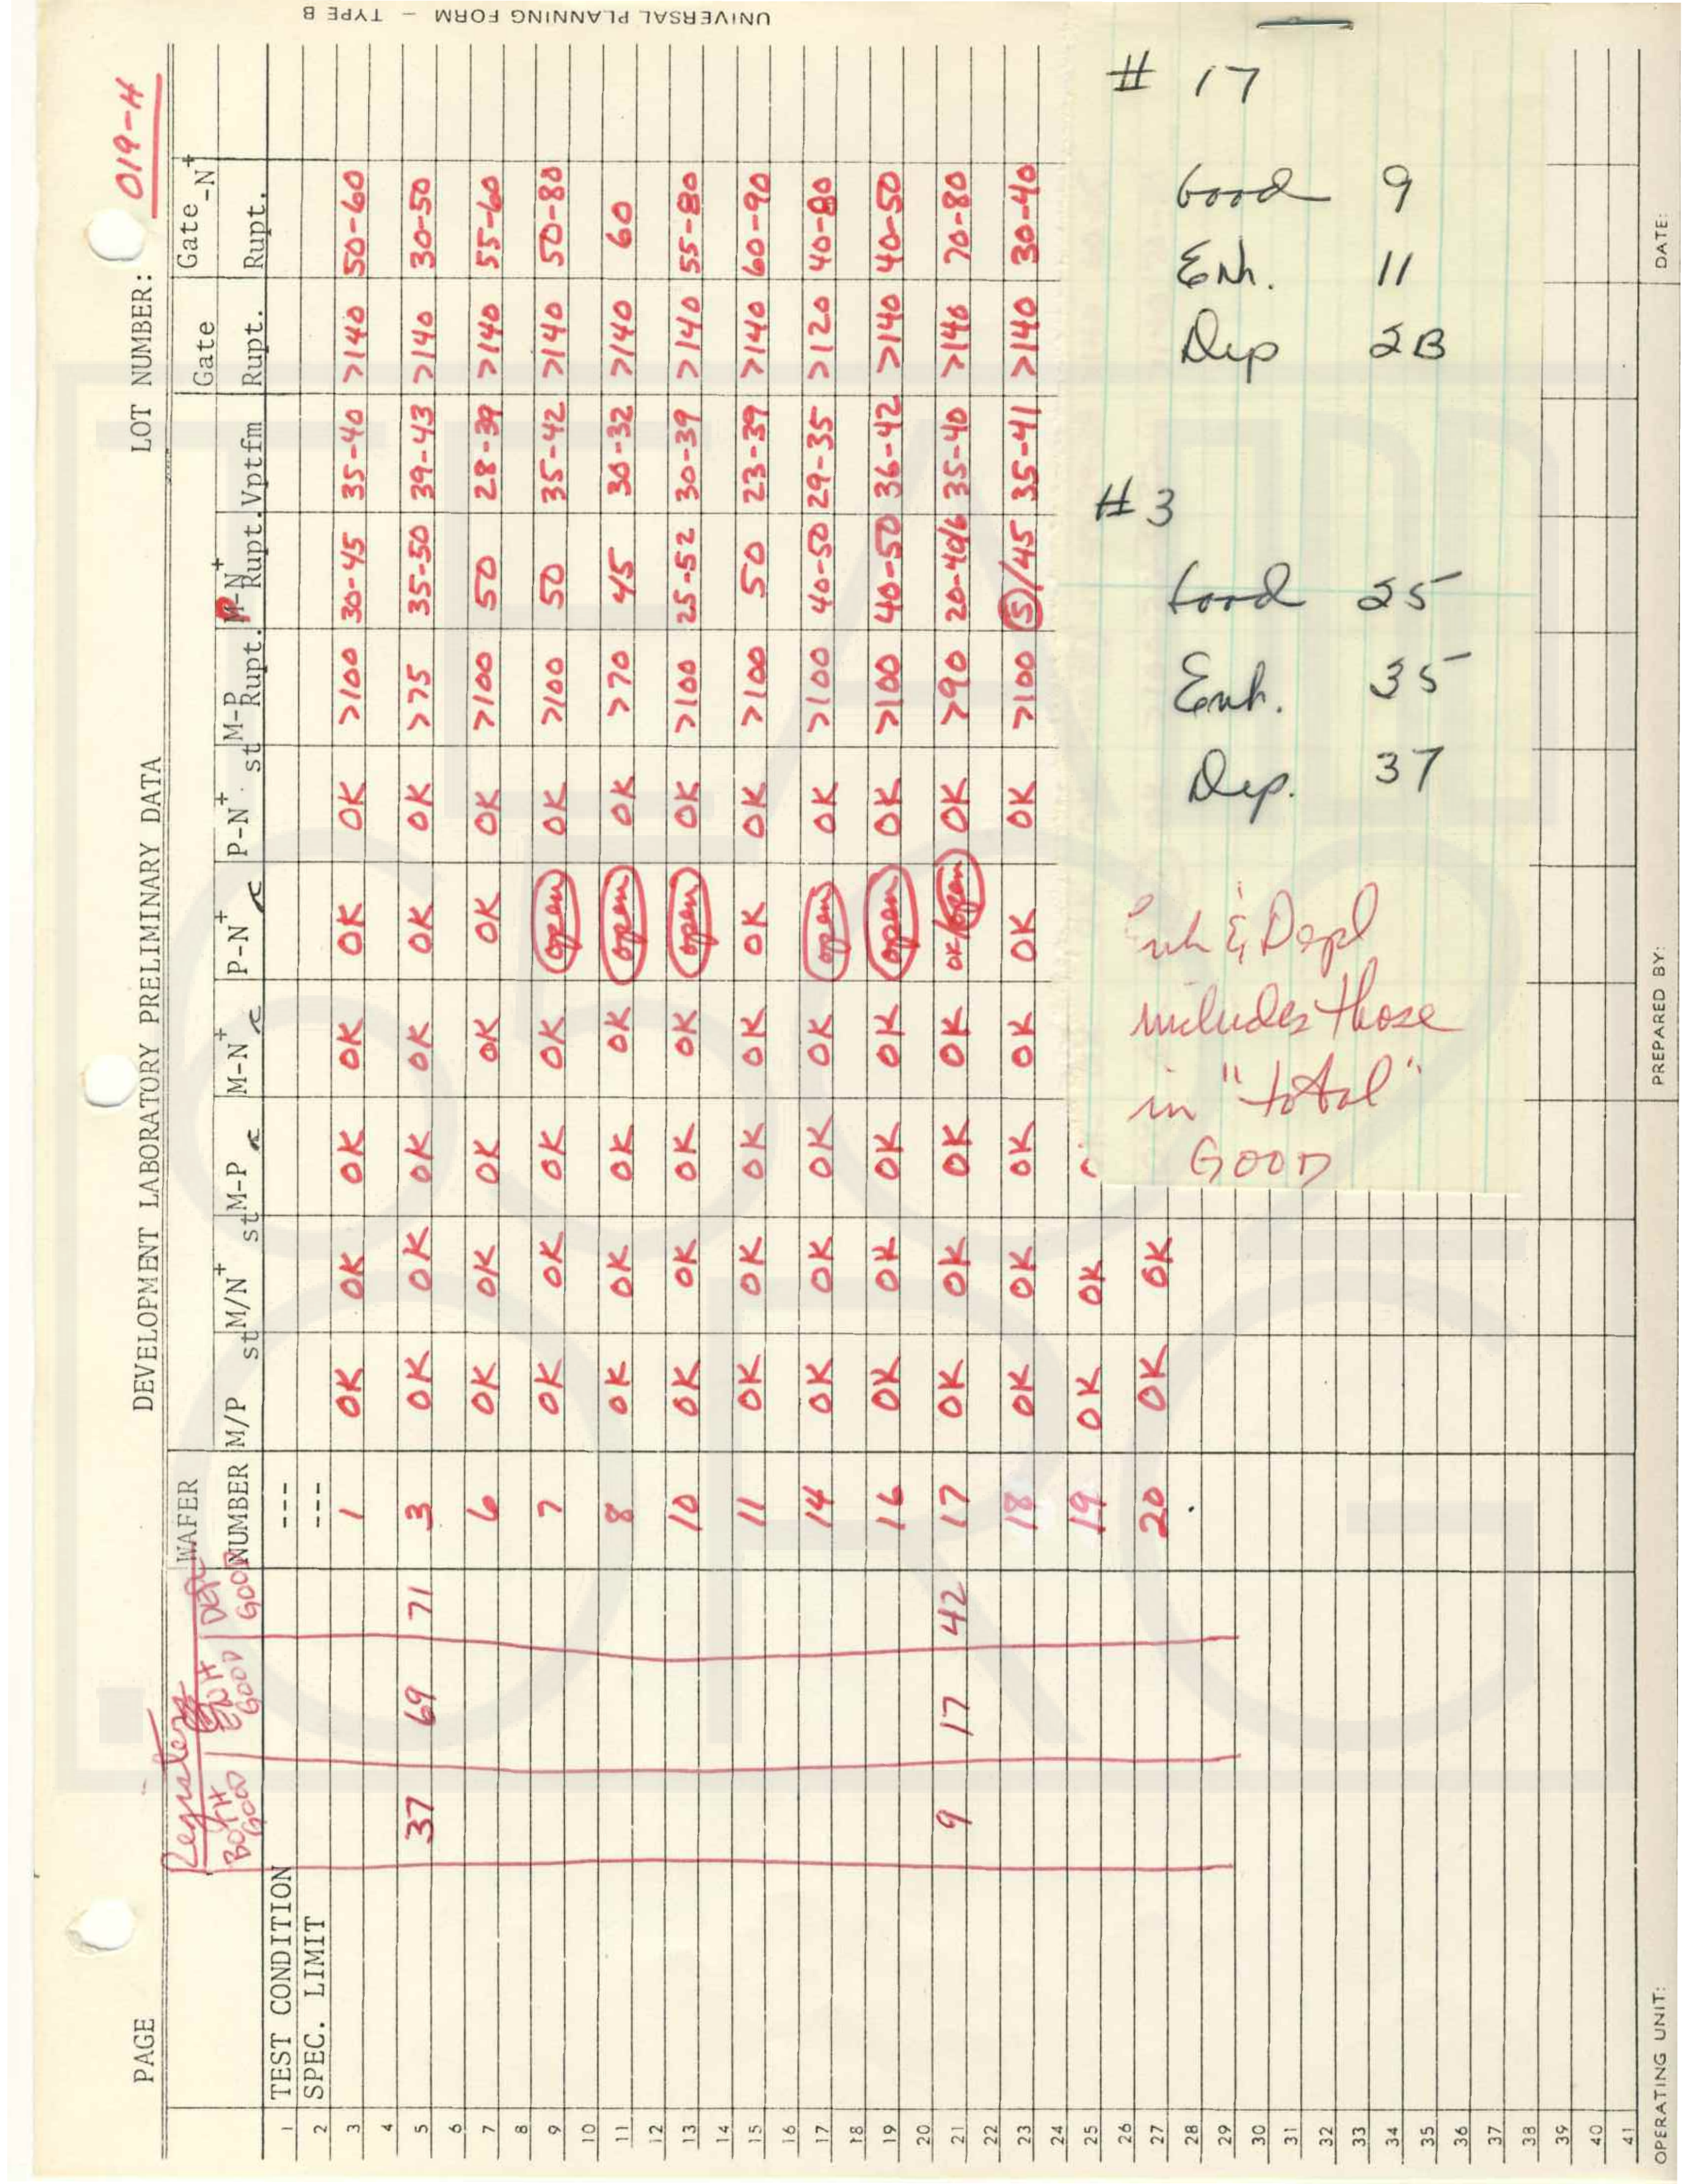 UNIVERSAL PLANNING FORM – TYPE B
PAGE DEVELOPMENT LABORATORY PRELIMINARY DATA LOT NUMBER: 019-H
Register
BOTH GOOD ENH GOOD DEPL GOOD WAFER NUMBER M/P st M/N+ st M-P M-N+ P-N+ P-N+ st M-P Rupt. P-N+ Rupt. Vptfm Gate Rupt. Gate -N+ Rupt.
1 TEST CONDITION ---
2 SPEC. LIMIT ---
3 1 OK OK OK OK OK OK >100 30-45 35-40 >140 50-60
4
5 37 69 71 3 OK OK OK OK OK OK >75 35-50 39-43 >140 30-50
6
7 6 OK OK OK OK OK OK >100 50 28-39 >140 55-60
8
9 7 OK OK OK OK open OK >100 50 35-42 >140 50-80
10
11 8 OK OK OK OK open OK >70 45 30-32 >140 60
12
13 10 OK OK OK OK open OK >100 25-52 30-39 >140 55-80
14
15 11 OK OK OK OK OK OK >100 50 23-39 >140 60-90
16
17 14 OK OK OK OK open OK >100 40-50 29-35 >120 40-80
18
19 16 OK OK OK OK open OK >100 40-50 36-42 >140 40-50
20
21 9 17 42 17 OK OK OK OK OK/open OK >90 20-40/6 35-40 >140 70-80
22
23 18 OK OK OK OK OK OK >100 5/45 35-41 >140 30-40
24
25 19 OK OK
26
27 20 OK OK
28
29
30
31
32
33
34
35
36
37
38
39
40
41
OPERATING UNIT: PREPARED BY: DATE:
# 17
Good 9
Enh. 11
Dep 2B
# 3
Good 25
Enh. 35
Dep. 37
Enh & Depl
includes those
in "total"
GOOD